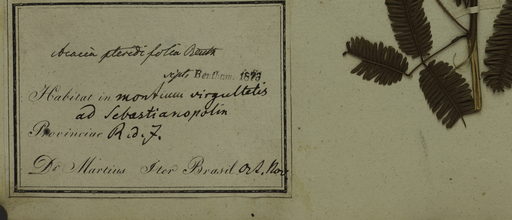 Acacia pteridifolia Benth
scpt. Bentham. 1873
Habitat in montium virgultetis
ad Sebastianopolin
Provinciae R. d. J.
Dr Martius Iter Brasil. Oct. Nov